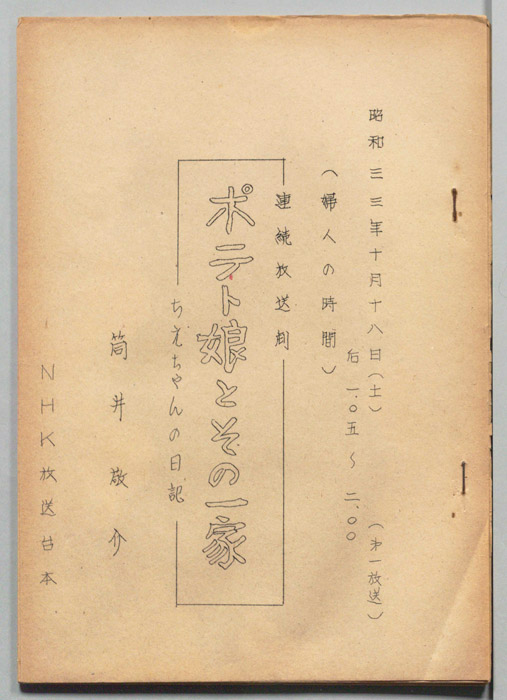 昭和三三年十月十八日(土)
(第一放送)
后一.〇五〜二.〇〇
(婦人の時間)
連続放送劇
ポテト娘とその一家
ちえちゃんの日記
筒井敬介
NHK放送台本